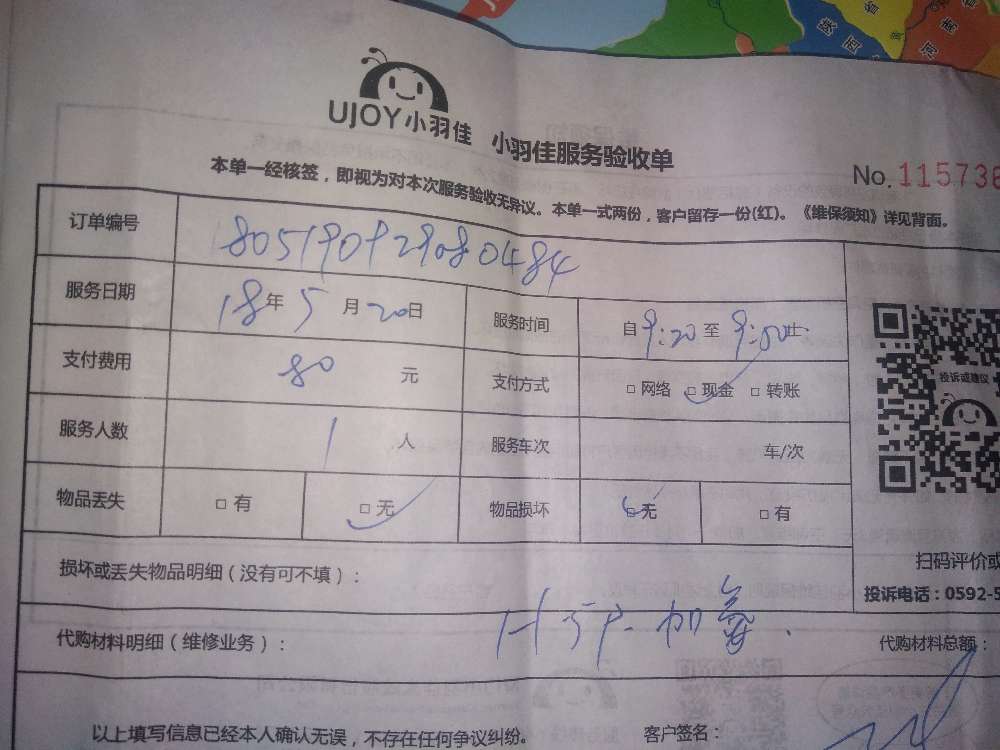 陕西省
河南省
UJOY小羽佳 小羽佳服务验收单
No. 115736
本单一经核签，即视为对本次服务验收无异议。本单一式两份，客户留存一份(红)。《维保须知》详见背面。
订单编号 1805190929080484
服务日期 18年5月20日 服务时间 自9:20至9:50止
支付费用 80 元 支付方式 □网络 □现金 □转账
投诉或建议
服务人数 1 人 服务车次 车/次
物品丢失 □有 □无 物品损坏 □无 □有
扫码评价或
损坏或丢失物品明细（没有可不填）：
投诉电话：0592-5
代购材料明细（维修业务）： 代购材料总额：
以上填写信息已经本人确认无误，不存在任何争议纠纷。 客户签名：